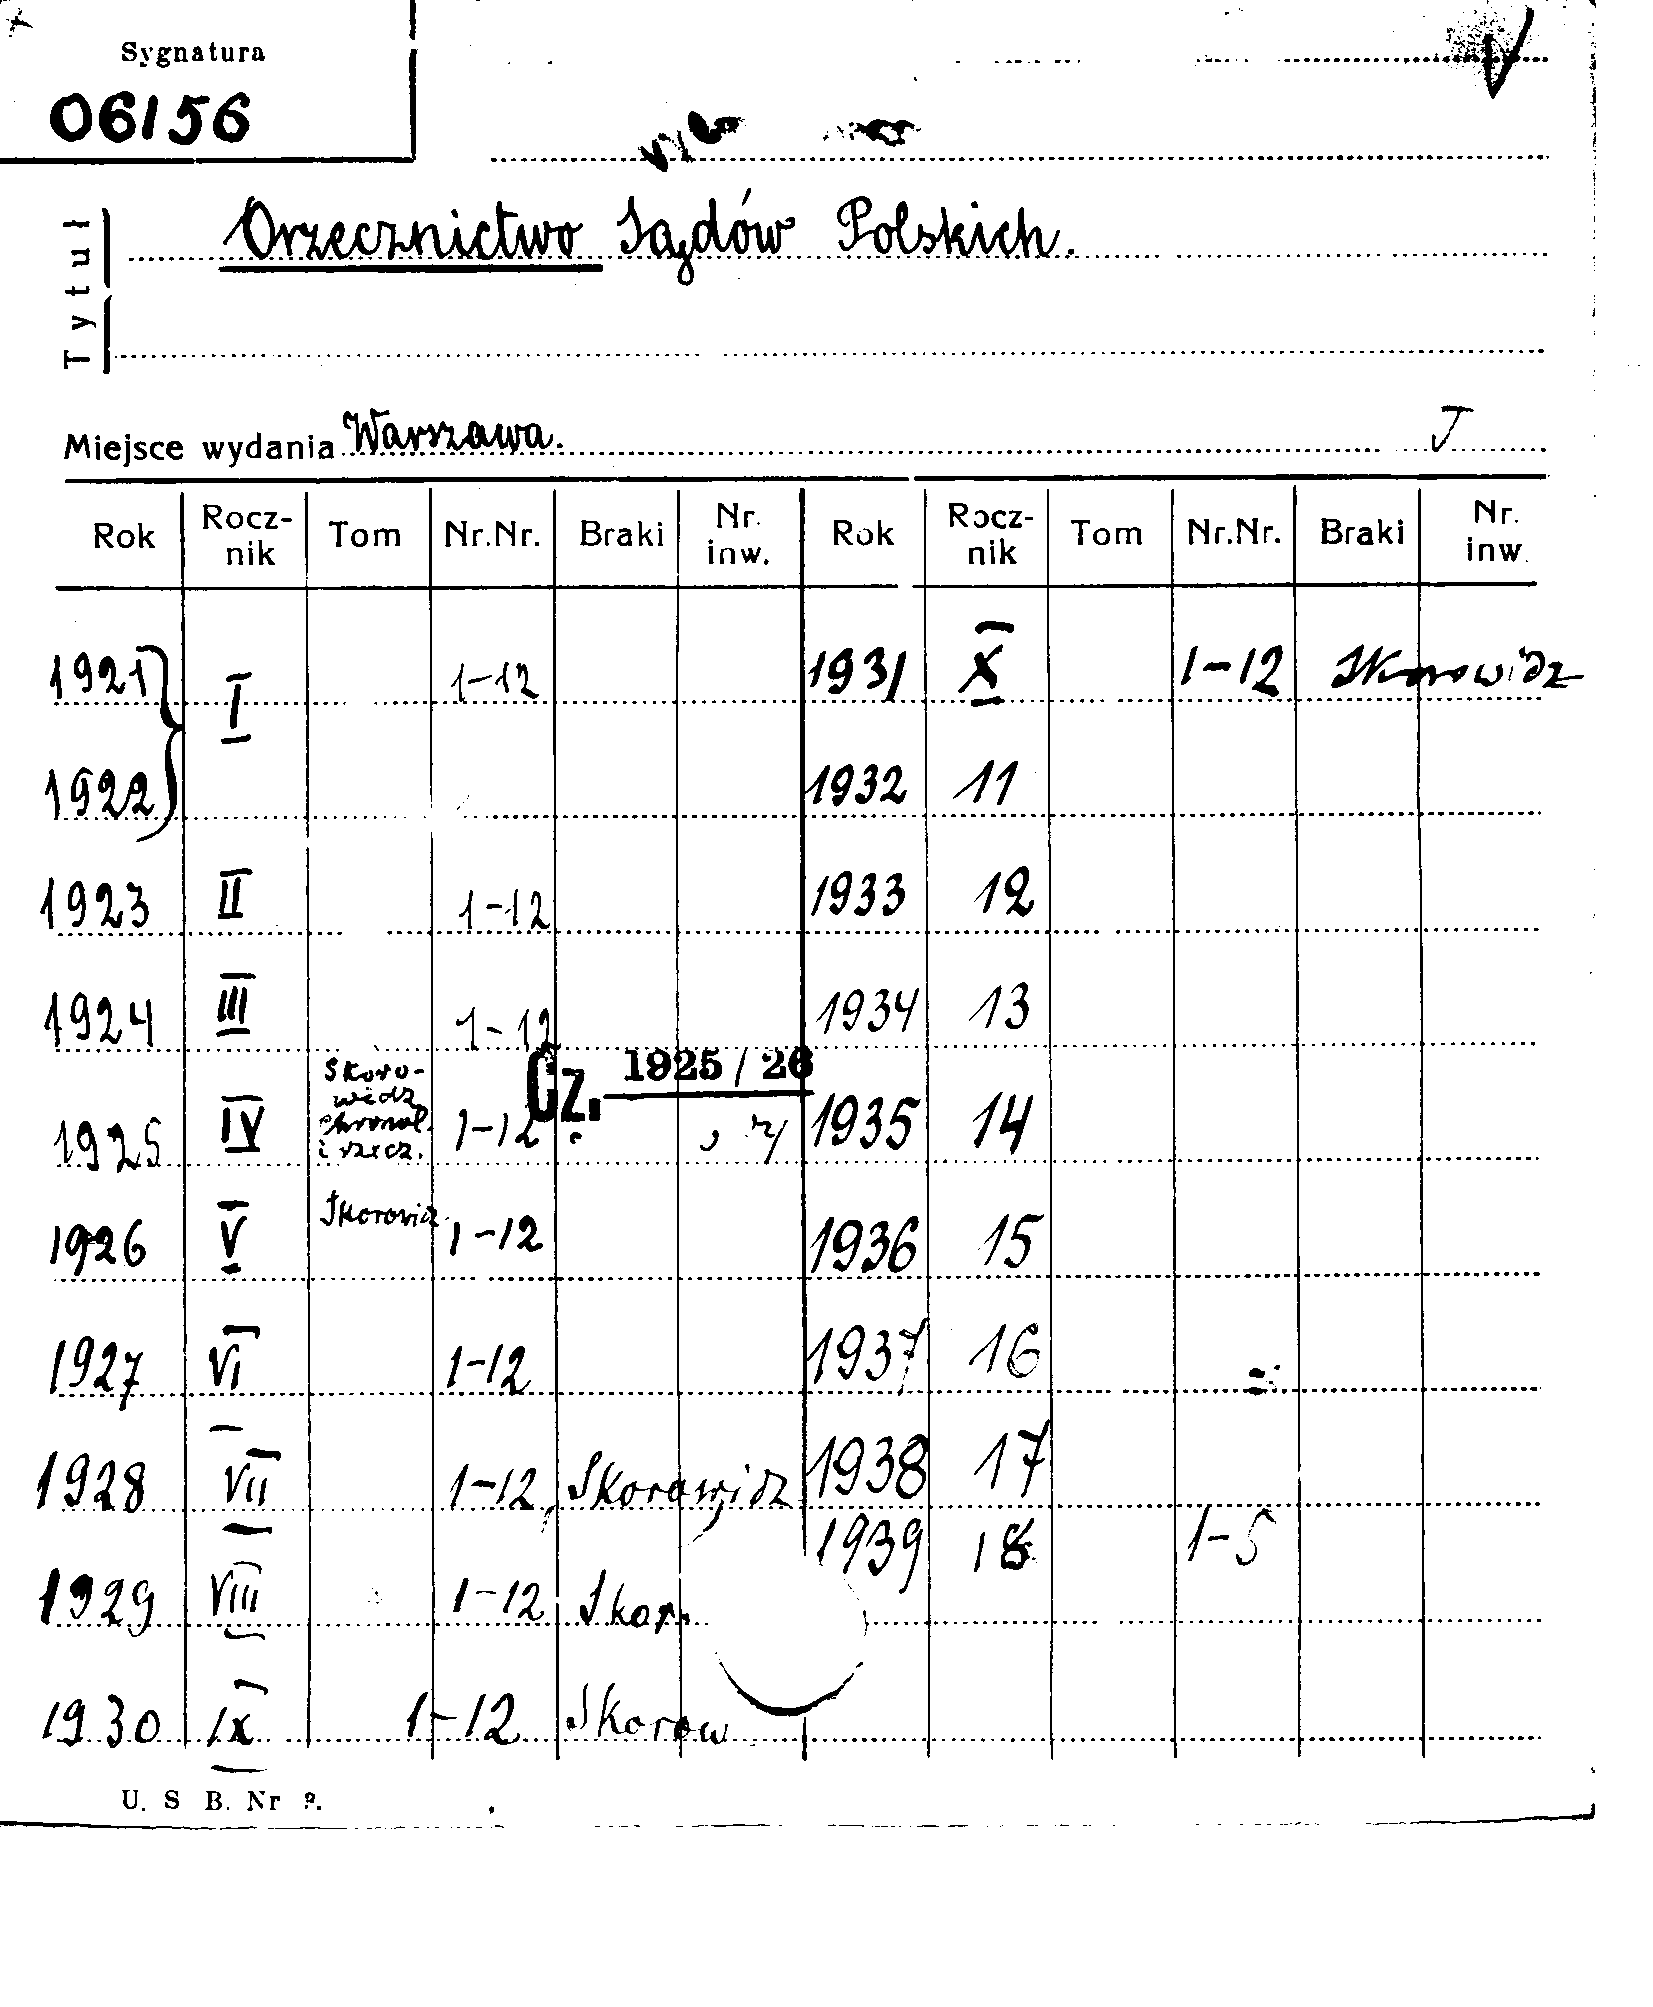 Sygnatura
06156
Tytuł
Orzecznictwo Sądów Polskich.
Miejsce wydania Warszawa. J
Rok Rocz-nik Tom Nr.Nr. Braki Nr. inw. Rok Rocz-nik Tom Nr.Nr. Braki Nr. inw.
1921 I 1-12 1931 X 1-12 Skorowidz
1922 1932 11
1923 II 1-12 1933 12
1924 III 1-12 1934 13
Cz. 1925/26
1925 IV Skoro-widz chronol. i rzecz. 1-12 1935 14
1926 V Skorowidz 1-12 1936 15
1927 VI 1-12 1937 16
1928 VII 1-12 Skorowidz 1938 17
1939 18 1-5
1929 VIII 1-12 Skor.
1930 IX 1-12 Skorow
U. S. B. Nr